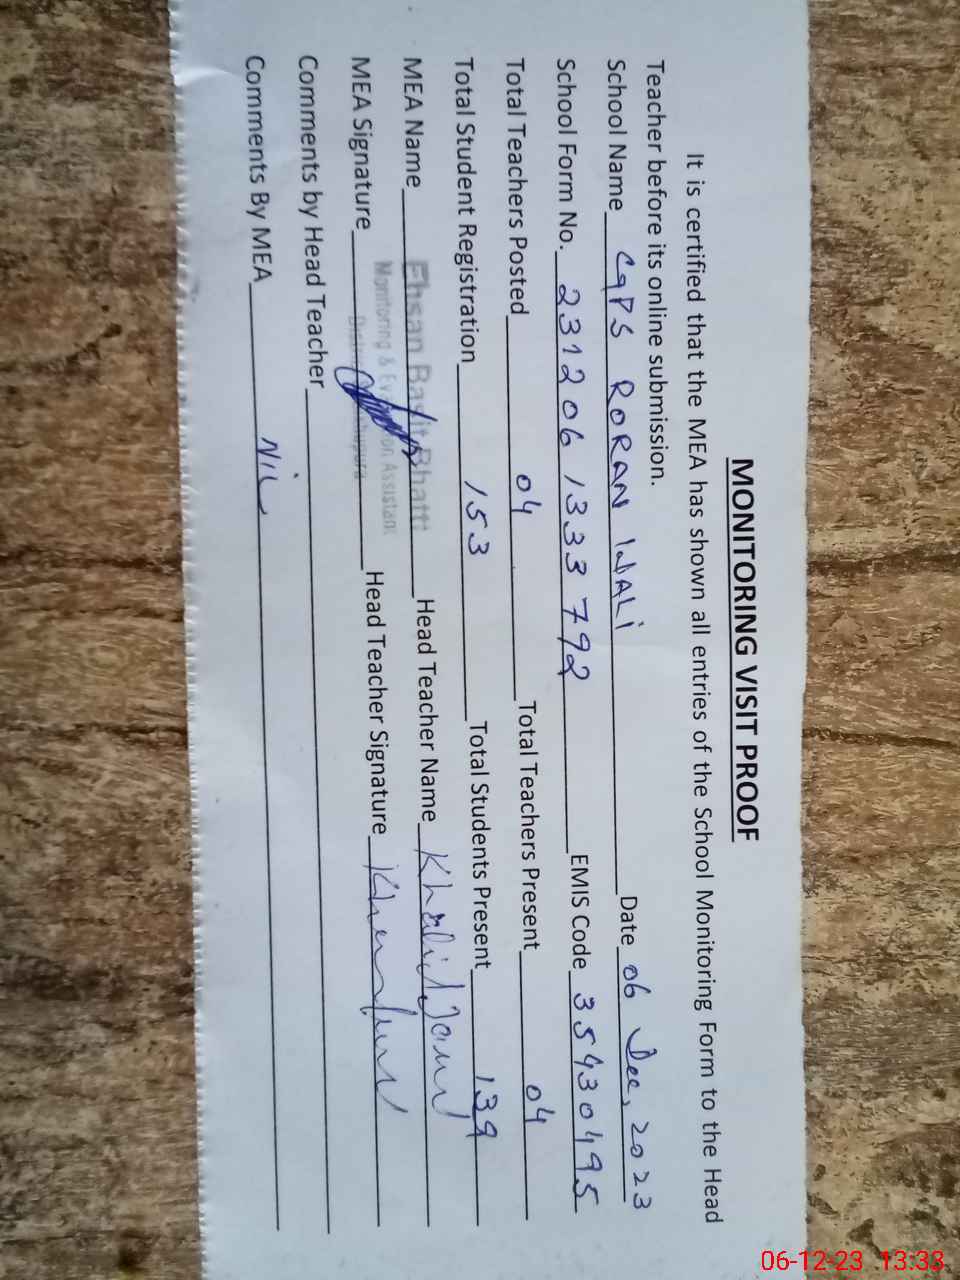 MONITORING VISIT PROOF
It is certified that the MEA has shown all entries of the School Monitoring Form to the Head
Teacher before its online submission.
School Name GPS RORAN WALI Date 06 Dec, 2023
School Form No. 2312061333792 EMIS Code 35430495
Total Teachers Posted 04 Total Teachers Present 04
Total Student Registration 153 Total Students Present 139
MEA Name Ehsan Basit Bhatti Head Teacher Name Khalid
Monitoring & Evaluation Assistant
MEA Signature Head Teacher Signature
Comments by Head Teacher
Comments By MEA NIL
06-12-23 13:33